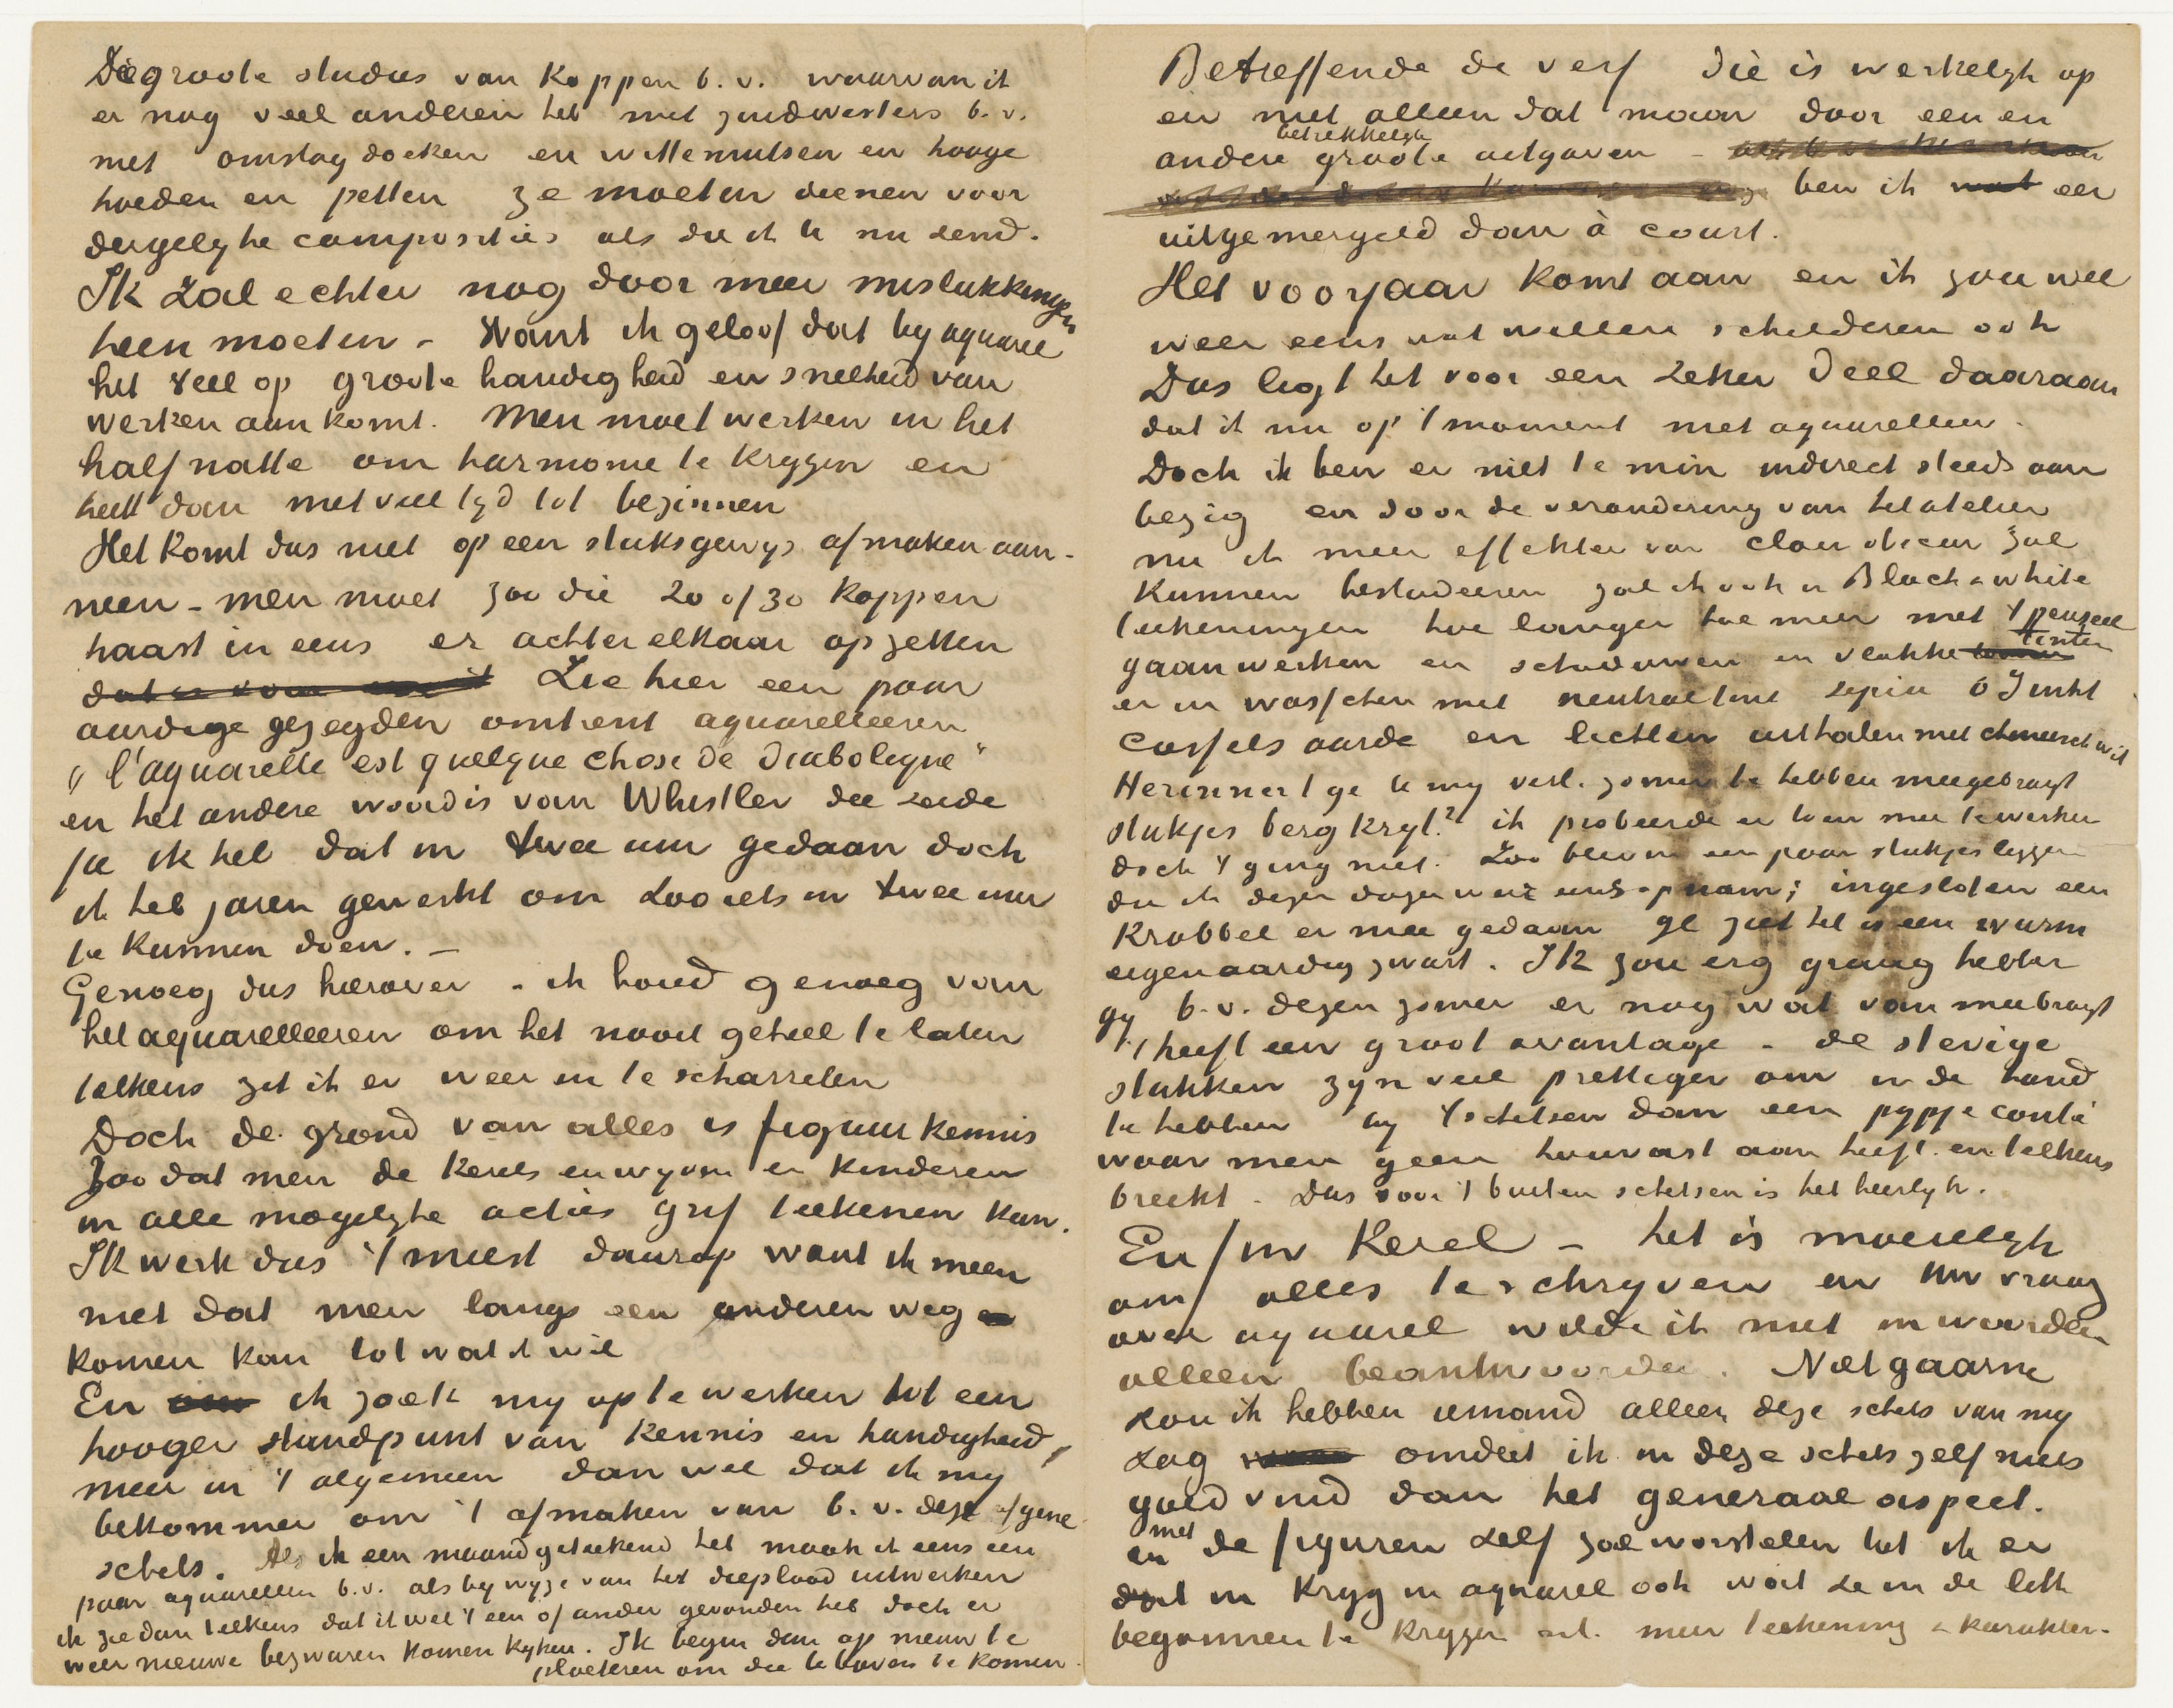 Die groote studies van koppen b.v. waarvan ik
er nog veel anderen heb met zuidwesters b.v.
met omslagdoeken en witte mutsen en hooge
hoeden en petten ze moeten dienen voor
dergelyke composities als die ik U nu zend.
Ik zal echter nog door meer mislukkingen
heen moeten – Want ik geloof dat by aquarel
het veel op groote handigheid en snelheid van
werken aankomt. Men moet werken in het
half natte om harmonie te krygen en
heeft dan niet veel tyd tot bezinnen
Het komt dus niet op een stuksgewys afmaken aan –
neen – men moet zoo die 20 of 30 koppen
haast in eens er achter elkaar opzetten
Zie hier een paar
aardige gezegden omtrent aquarelleeren
"l'aquarelle est quelque chose de diabolique"
en het andere woord is van Whistler die zeide
ja ik heb dat in twee uur gedaan doch
ik heb jaren gewerkt om zoo iets in twee uur
te kunnen doen. –
Genoeg dus hierover – ik houd genoeg van
het aquarelleeren om het nooit geheel te laten
telkens zit ik er weer in te scharrelen
Doch de grond van alles is figuurkennis
Zoo dat men de kerels en wyven en kinderen
in alle mogelyke acties grif teekenen kan.
Ik werk dus 't meest daarop want ik meen
niet dat men langs een anderen weg
komen kan tot wat ik wil
En ik zoek my op te werken tot een
hooger standpunt van kennis en handigheid,
meer in 't algemeen dan wel dat ik my
bekommer om 't afmaken van b.v. deze of gene
schets. Als ik een maand geteekend heb maak ik eens een
paar aquarellen b.v. als by wyze van het dieplood uitwerken
ik zie dan telkens dat ik wel 't een of ander gevonden heb doch er
weer nieuwe bezwaren komen kyken. Ik begin dan op nieuw te
ploeteren om die te boven te komen.
Betreffende de verf die is werkelyk op
en niet alleen dat maar door een en
betrekkelyk
andere groote uitgaven –
ben ik eer
uitgemergeld dan à court.
Het voorjaar komt aan en ik zou wel
weer eens wat willen schilderen ook
Dus ligt het voor een zeker deel daaraan
dat ik nu op 't moment niet aquarelleer.
Doch ik ben er niet te min indirect steeds aan
bezig en door de verandering van het atelier
nu ik meer effekten van clair obscur zal
kunnen bestudeeren zal ik ook in Black & white
teekeningen hoe langer hoe meer met 't penseel
tinten
gaan werken en schaduwen en vlakke
er in wasschen met neutraaltint sepia O I inkt
casselsaarde en lichten uithalen met chineesch wit
Herinnert ge U my verl. zomer te hebben meegebragt
stukjes bergkryt? ik probeerde er toen mee te werken
doch 't ging niet. Zoo bleven een paar stukjes liggen
die ik dezer dagen weer eens opnam; ingesloten een
krabbel er mee gedaan ge ziet het is een warm
eigenaardig zwart. Ik zou erg graag hebben
gy b.v. dezen zomer er nog wat van meebragt
't heeft een groot avantage – de stevige
stukken zyn veel prettiger om in de hand
te hebben by 't schetsen dan een pypje conté
waar men geen houvast aan heeft en telkens
breekt – Dus voor 't buiten schetsen is het heerlyk.
Enfin Kerel – het is moeielyk
om alles te schryven en Uw vraag
over aquarel wilde ik niet in woorden
alleen beantwoorden. Niet gaarne
zou ik hebben iemand alleen deze schets van my
zag omdat ik in deze schets zelf niets
goed vind dan het generaal aspect.
met
en de figuren zelf zal worstelen tot ik er
dat in kryg in aquarel ook wat ze in de lith
begonnen te krygen nl. meer teekening & karakter.